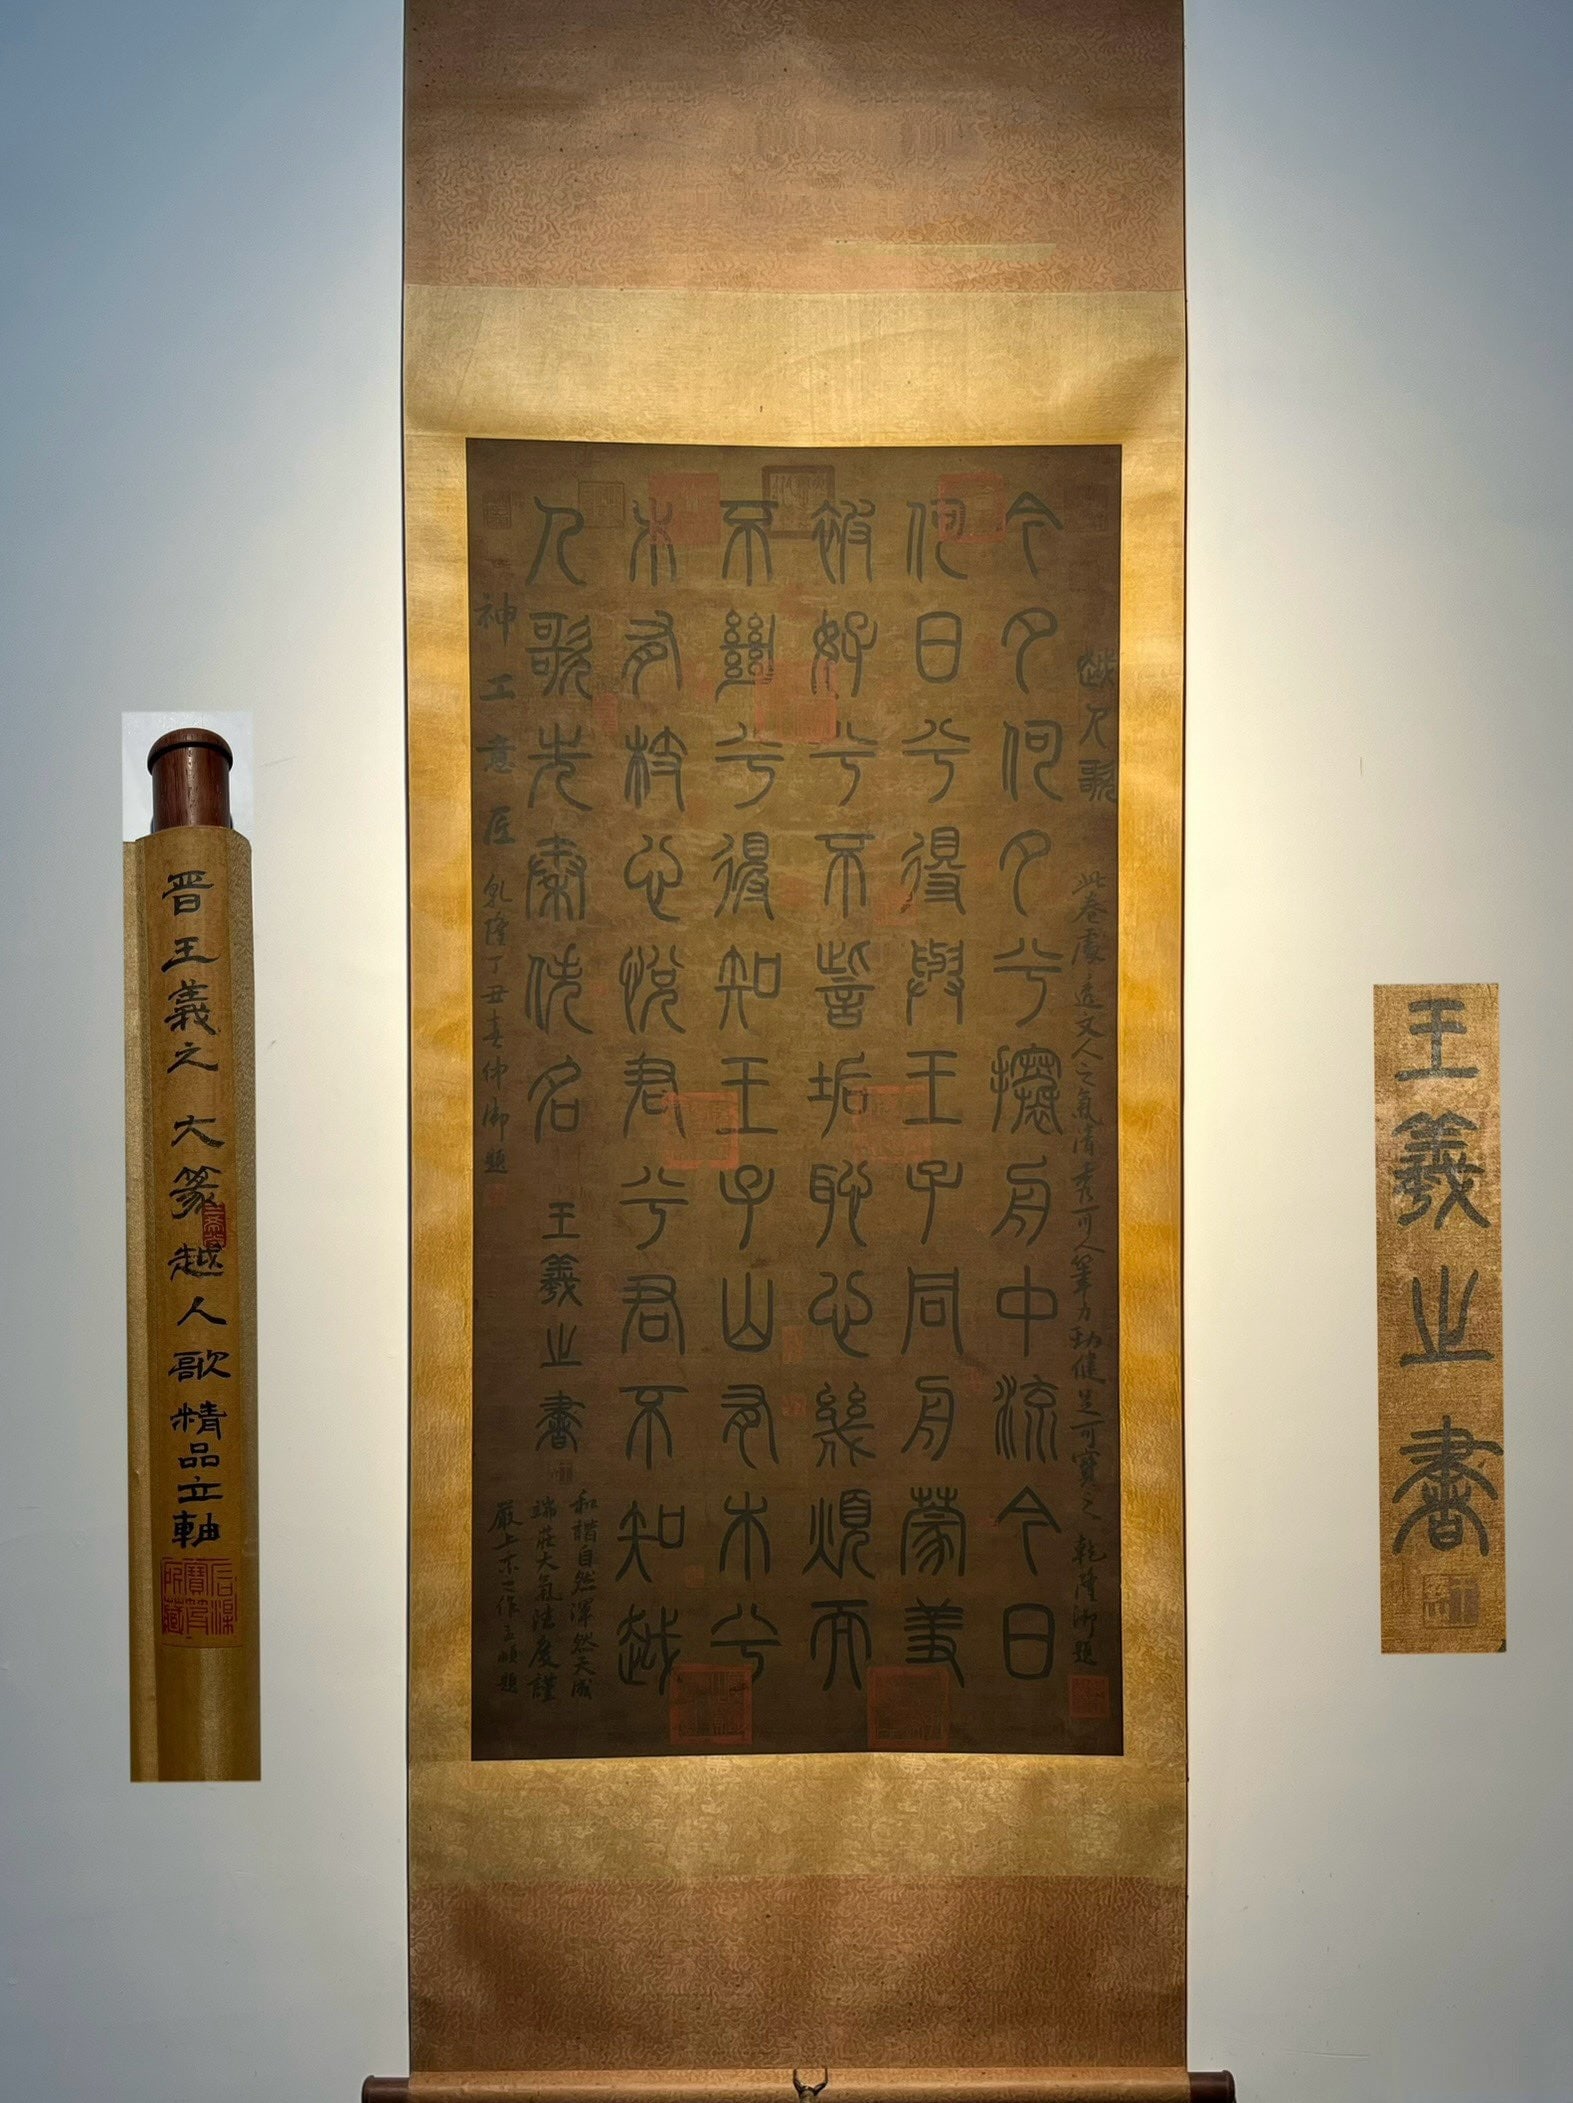 晋王義之 大篆越人歌精品立軸
石渠寶笈所藏
越人歌 此卷處透文人之氣清秀可人筆力勁健是可寶之 乾隆御題
今夕何夕兮攓舟中流今日
何日兮得與王子同舟蒙羞
被好兮不訾垢恥心幾煩而
不絕兮得知王子山有木兮
木有枝心悅君兮君不知越
人歌先秦佚名 王羲之書
和諧自然渾然天成
端莊大氣法度謹
嚴上乘之作 題
神工意匠 乾隆丁丑春仲御題
王羲之書